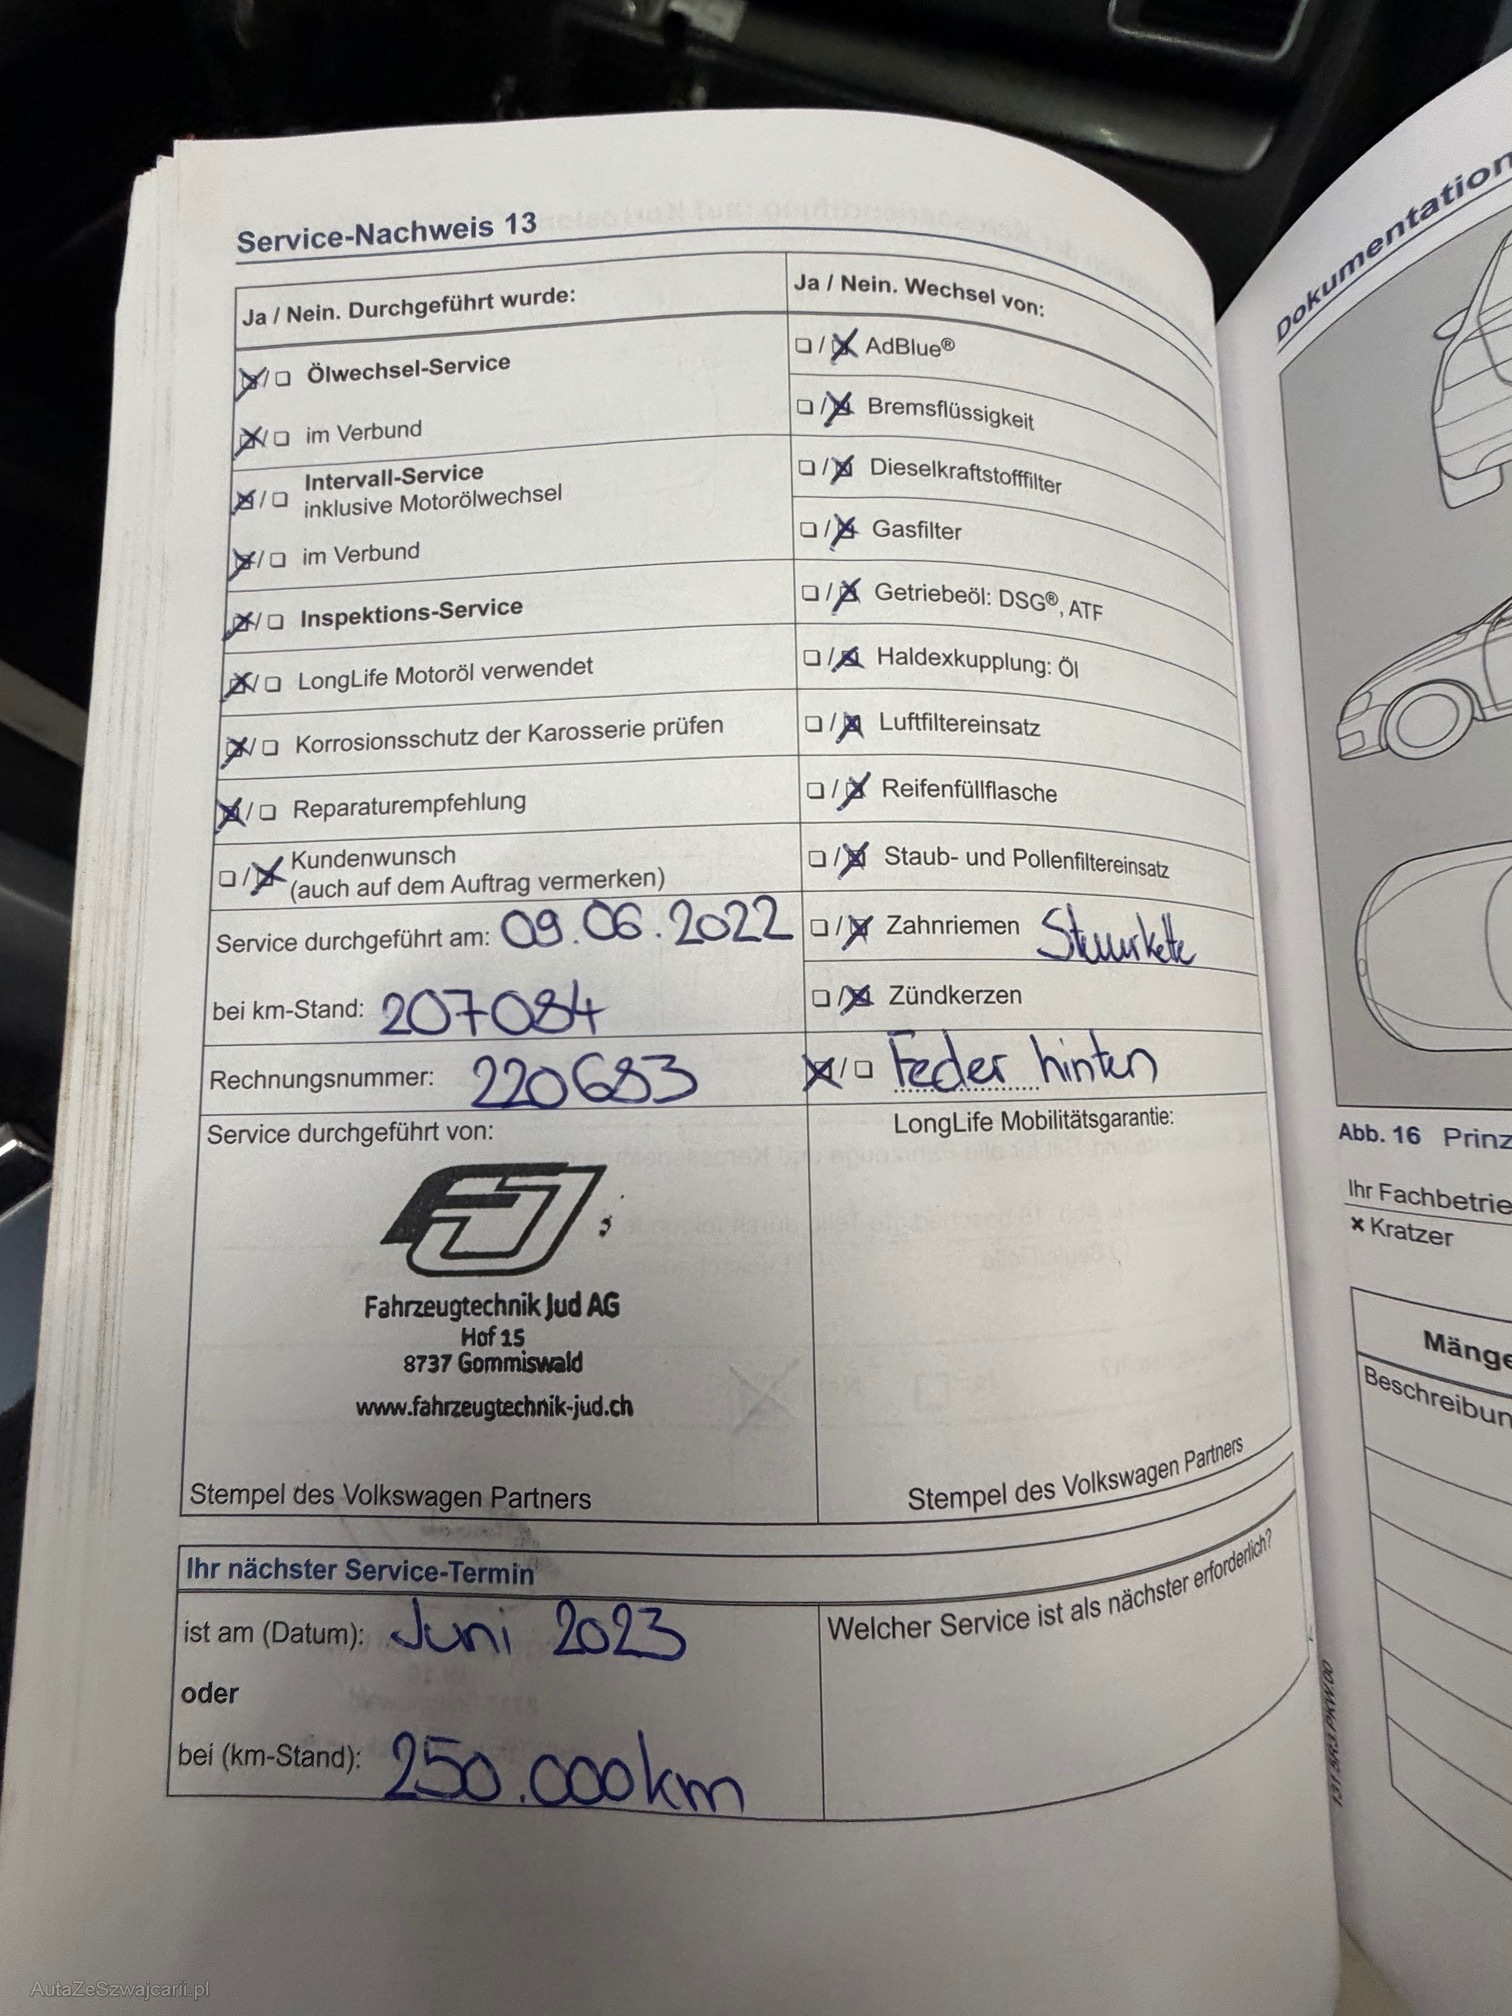 Service-Nachweis 13
Ja / Nein. Durchgeführt wurde:
Ölwechsel-Service
im Verbund
Intervall-Service
inklusive Motorölwechsel
im Verbund
Inspektions-Service
LongLife Motoröl verwendet
Korrosionsschutz der Karosserie prüfen
Reparaturempfehlung
Kundenwunsch
(auch auf dem Auftrag vermerken)
Service durchgeführt am: 09.06.2022
bei km-Stand: 207084
Rechnungsnummer: 220683
Ja / Nein. Wechsel von:
AdBlue®
Bremsflüssigkeit
Dieselkraftstofffilter
Gasfilter
Getriebeöl: DSG®, ATF
Haldexkupplung: Öl
Luftfiltereinsatz
Reifenfüllflasche
Staub- und Pollenfiltereinsatz
Zahnriemen Steuerkette
Zündkerzen
Feder hinten
Service durchgeführt von:
FJ
Fahrzeugtechnik Jud AG
Hof 15
8737 Gommiswald
www.fahrzeugtechnik-jud.ch
Stempel des Volkswagen Partners
LongLife Mobilitätsgarantie:
Stempel des Volkswagen Partners
Ihr nächster Service-Termin
ist am (Datum): Juni 2023
oder
bei (km-Stand): 250.000km
Welcher Service ist als nächster erforderlich?
131.5R3.PKW.00
Dokumentation
Abb. 16 Prinz
Ihr Fachbetrie
× Kratzer
Mänge
Beschreibun
AutaZeSzwajcarii.pl